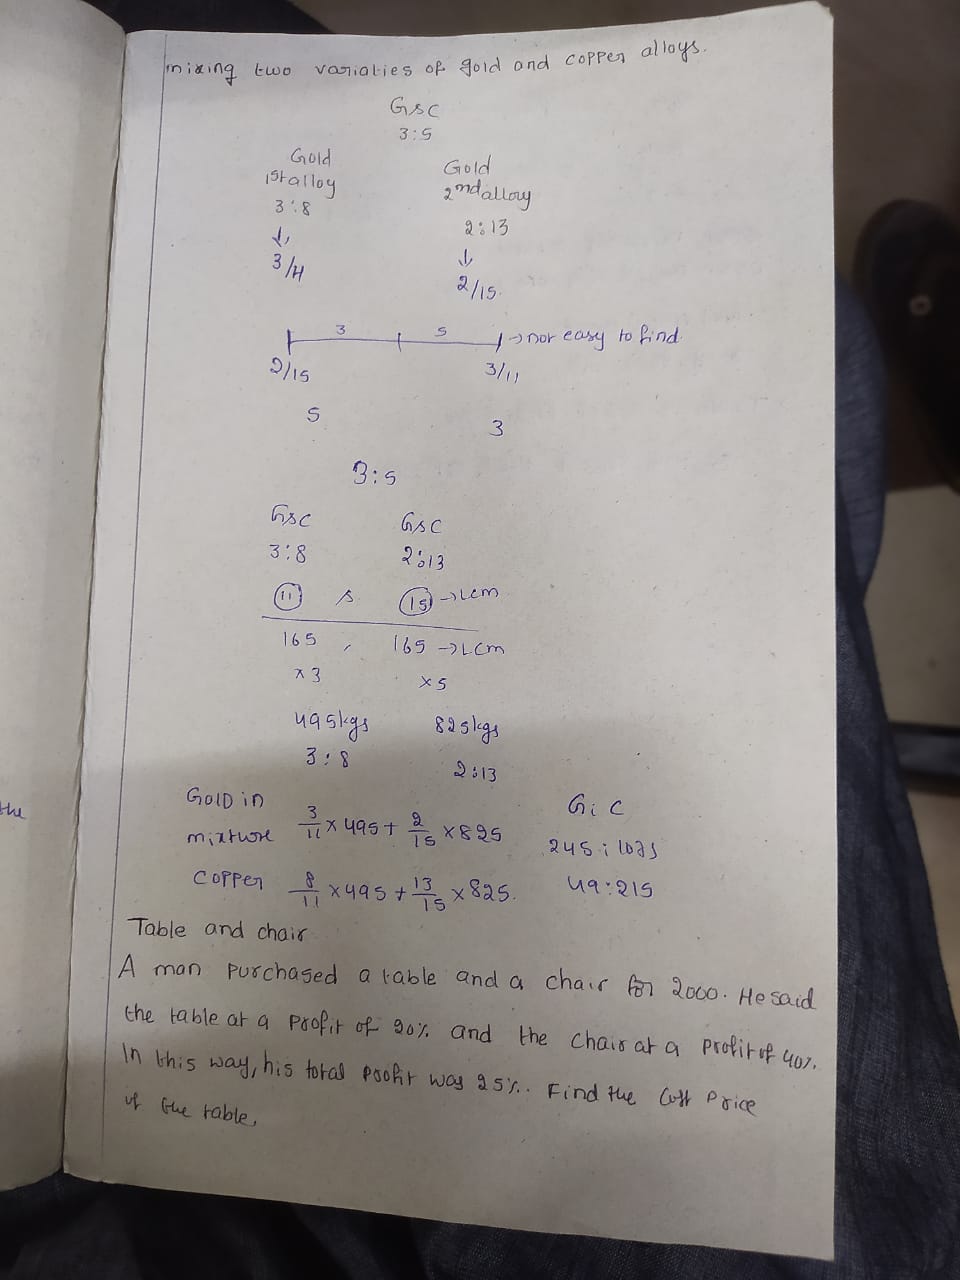 mixing two variaties of gold and copper alloys.
G:C
3:5
Gold
1st alloy
3:8
↓
3/11
Gold
2nd alloy
2:13
↓
2/15.
3 5 → nor easy to find.
2/15 3/11
5 3
3:5
G:C G:C
3:8 2:13
11 , 15 → LCM
165 , 165 → LCM
×3 ×5
495kgs 825kgs
3:8 2:13
GOLD in G:C
mixture 3/11 × 495 + 2/15 × 825 245:1075
Copper 8/11 × 495 + 13/15 × 825. 49:215
Table and chair
A man purchased a table and a chair for 2000. He said
the table at a profit of 20% and the chair at a profit of 40%.
In this way, his total profit was 25%. Find the cost price
of the table,
the